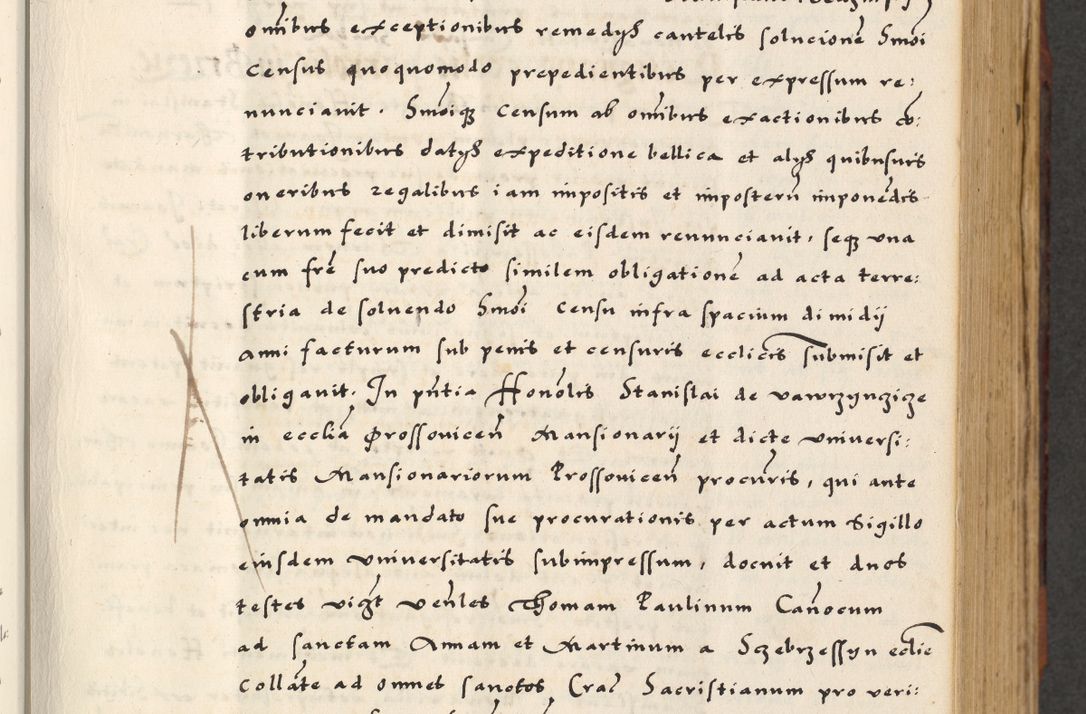 om̃ibus exceptionibus remedys cautelis solucionẽ Sm̃oi
Census quoquomodo prepedientibus per expressum re:
nunciauit. Sm̃oiq̃ Censum ab om̃ibus exactionibus cõ:
tributionibus datys expeditione bellica et alys quibusuis
oneribus regalibus iam impositis et imposterũ imponẽdis
liberum fecit et dimisit ac eisdem renunciauit, seq̃ una
cum fr̃e suo predicto similem obligationẽ ad acta terre:
stria de soluendo Sm̃oi censu infra spacium dimidij
anni facturum sub penis et censuris eccl̃icis submisit et
obligauit. In pñtia Honõlis Stanislai de vawrzynczicze
in eccliã Prossouiceñ Mansionarij et dicte vniuersi:
tatis Mansionariorum Prossouiceñ procur̃is, qui ante
omnia de mandato sue procurationis per actum Sigillo
eiusdem vniuersitatis subimpressum, docuit et duos
testes vig̃t veñles Thomam Paulinum Cañocum
ad sanctam Annam et Martinum a Sczebrzessyn eclie
Collãte ad omnes sanctos Crac̃ Sacristianum pro veri: